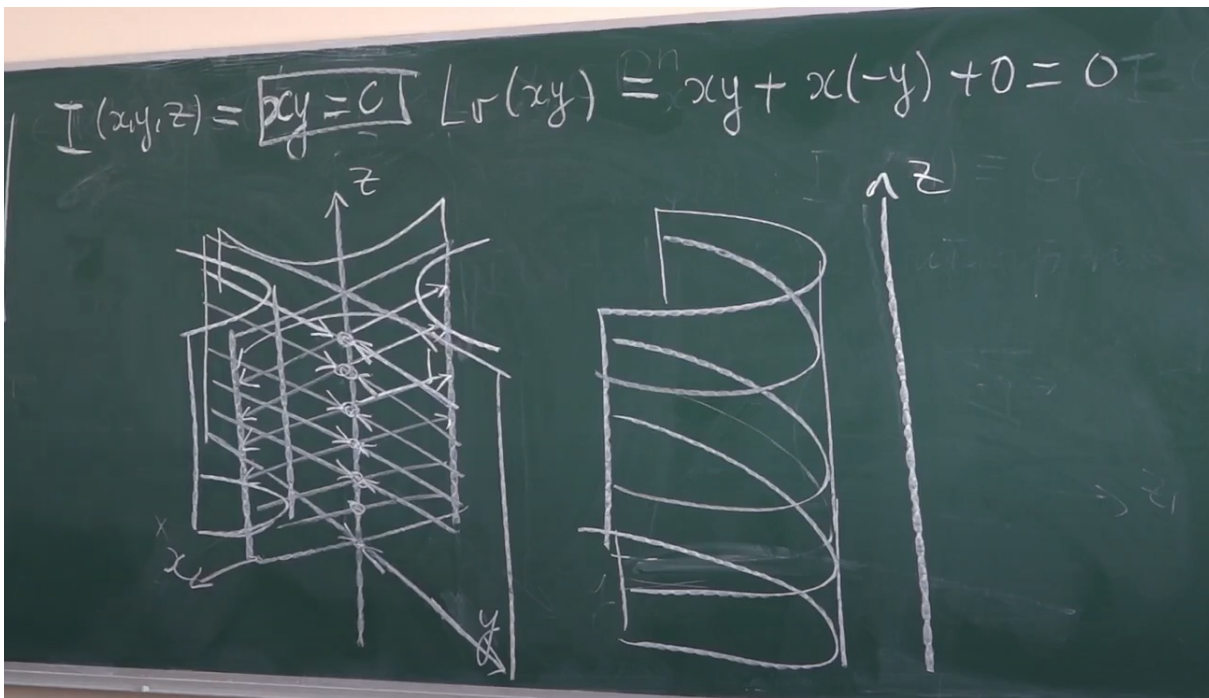 I(x,y,z) = xy = C Lv(xy) = xy + x(-y) + 0 = 0
z
z
x
y